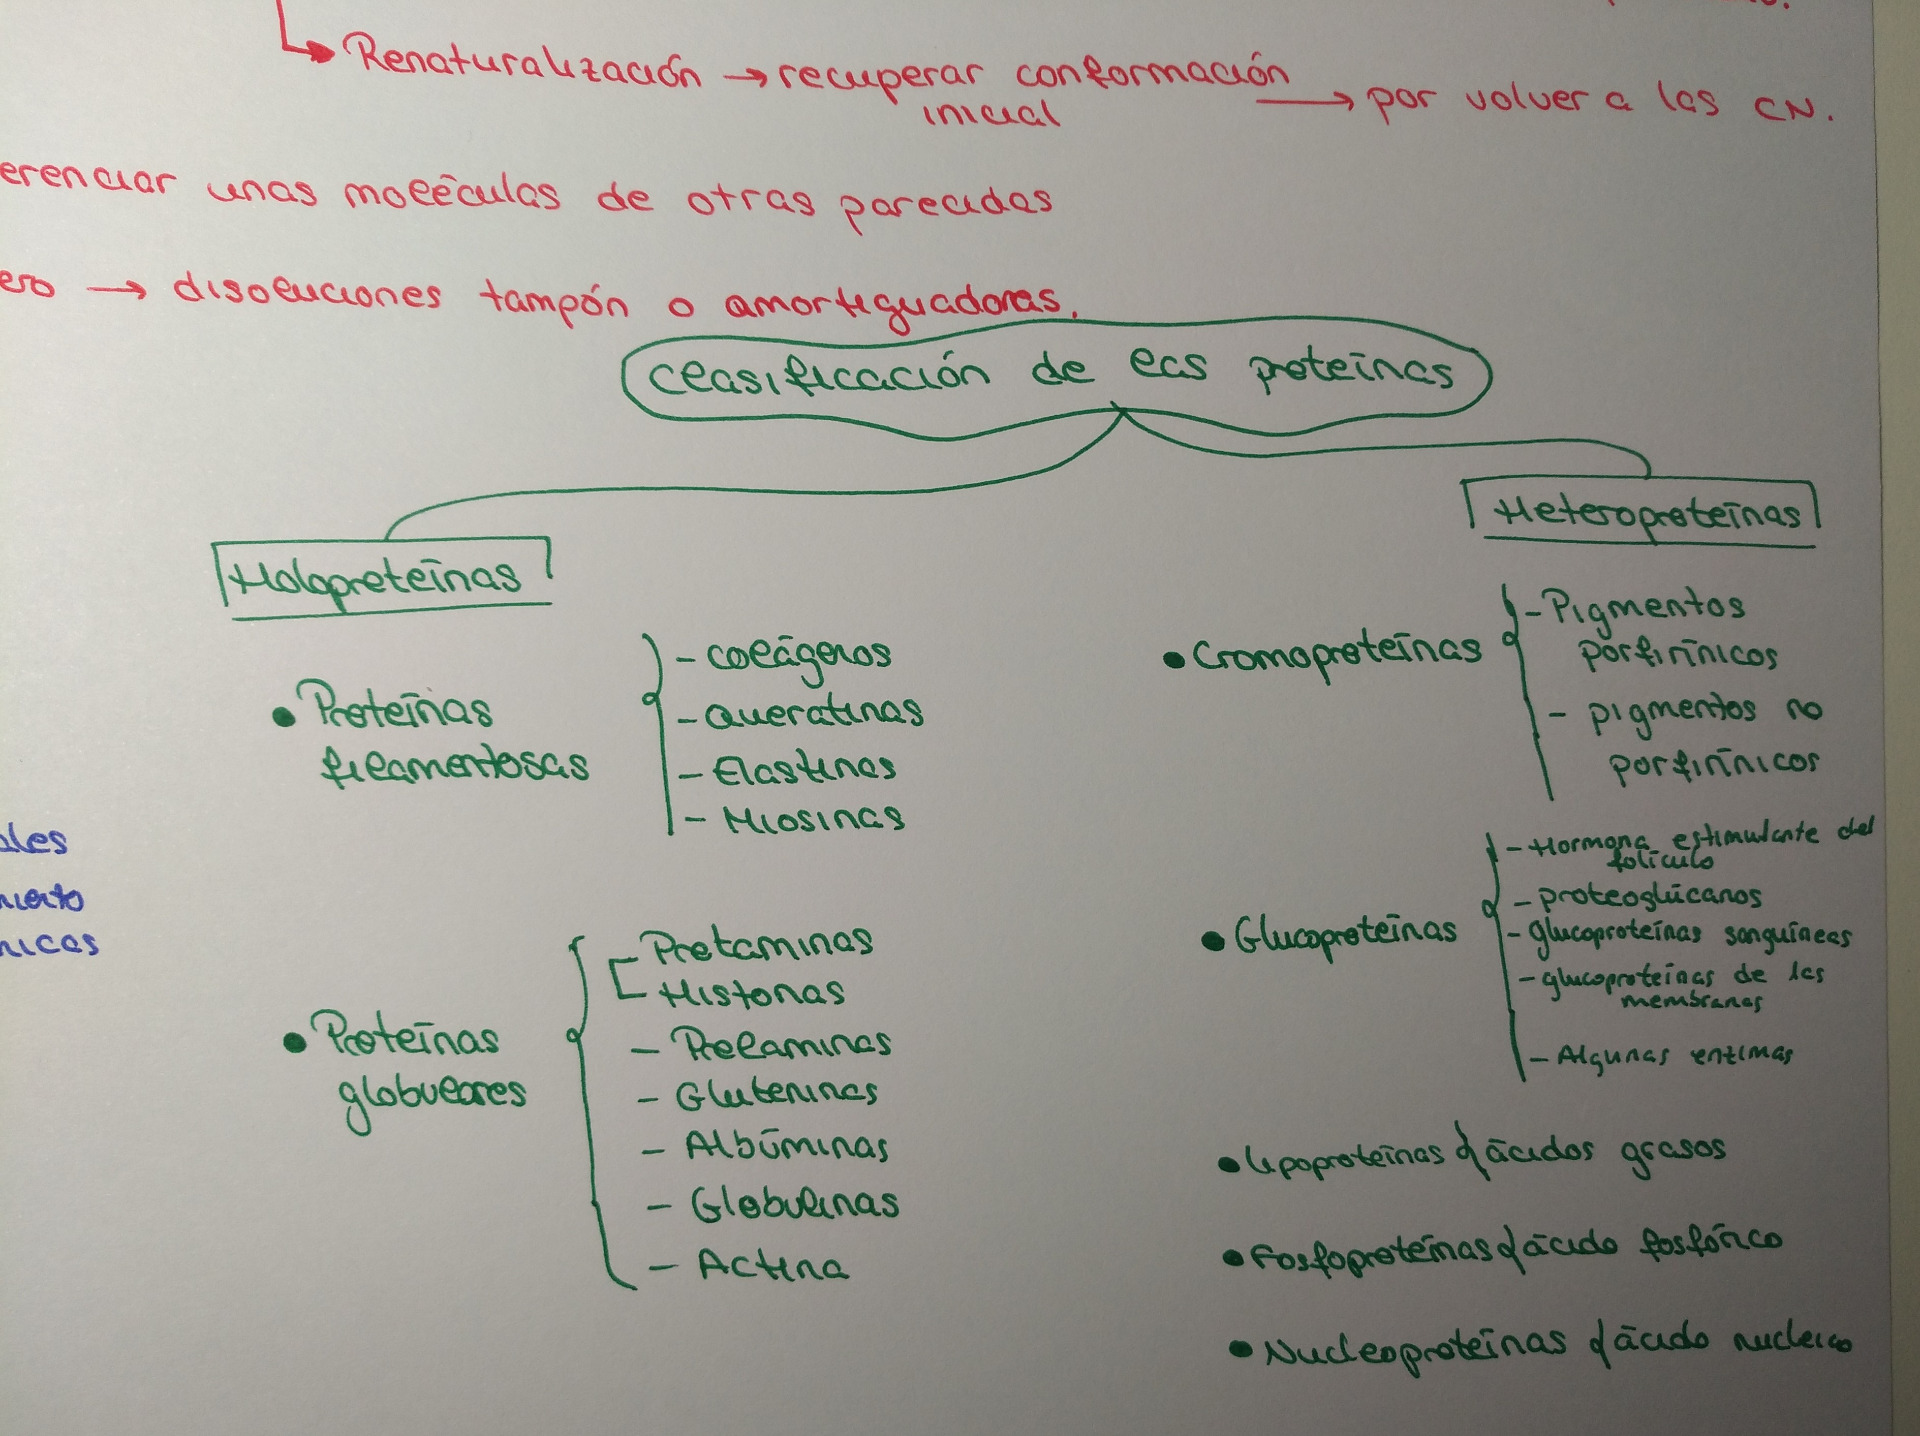 Renaturalización → recuperar conformación
inicial
→ por volver a las CN.
erenciar unas moléculas de otras parecidas
ero → disoluciones tampón o amortiguadoras.
Clasificación de las proteínas
Heteroproteínas
Holoproteínas
• Proteínas
filamentosas
- Colágenos
- Queratinas
- Elastinas
- Miosinas
• Cromoproteínas
- Pigmentos
porfirínicos
- pigmentos no
porfirínicos
ales
miento
nicas
• Proteínas
globulares
Protaminas
Histonas
- Prolaminas
- Gluteninas
- Albúminas
- Globulinas
- Actina
• Glucoproteínas
- Hormona estimulante del
folículo
- proteoglúcanos
- glucoproteínas sanguíneas
- glucoproteínas de las
membranas
- Algunas enzimas
• Lipoproteínas { ácidos grasos
• Fosfoproteínas { ácido fosfórico
• Nucleoproteínas { ácido nucleico